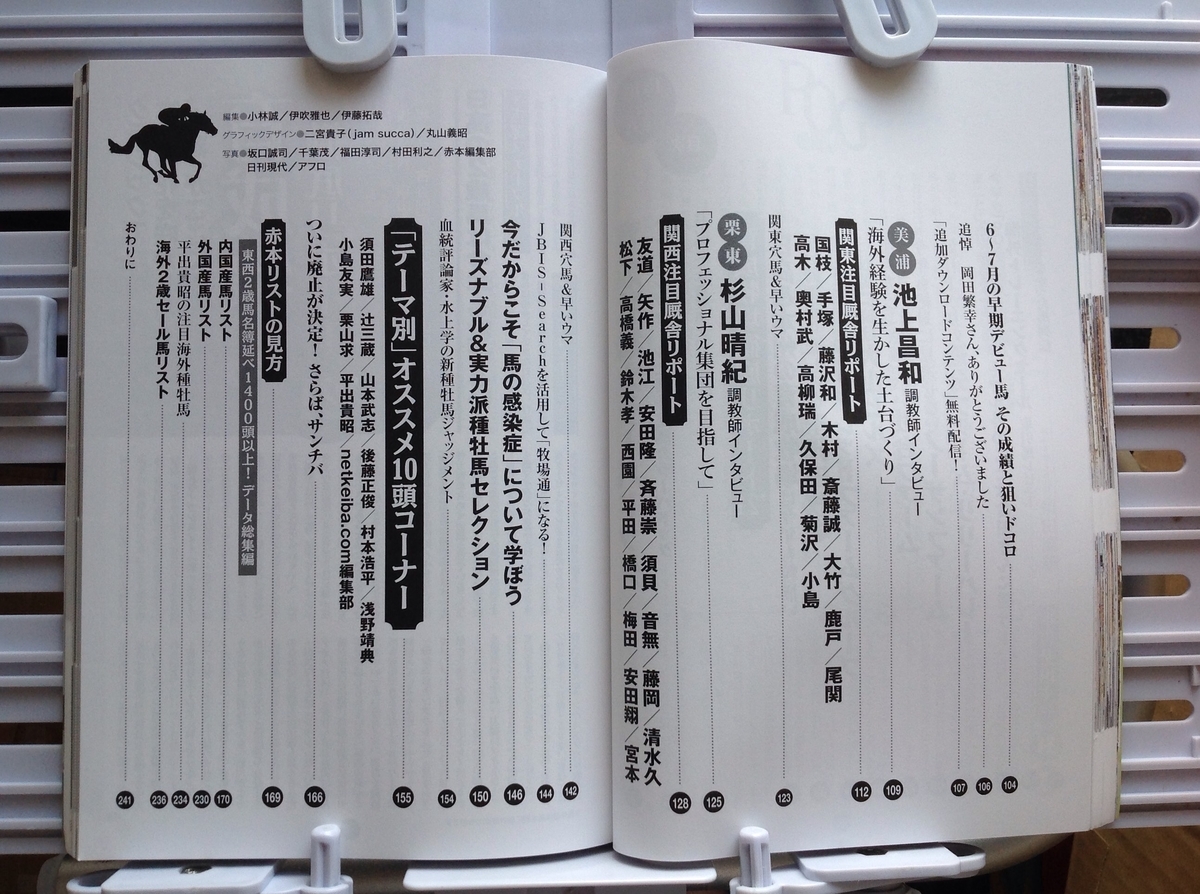 6〜7月の早期デビュー馬 その成績と狙いドコロ 104
追悼 岡田繁幸さん、ありがとうございました 106
「追加ダウンロードコンテンツ」無料配信! 107
美浦 池上昌和 調教師インタビュー
「海外経験を生かした土台づくり」 109
関東注目厩舎リポート 112
国枝/手塚/藤沢和/木村/斎藤誠/大竹/鹿戸/尾関
高木/奥村武/高柳瑞/久保田/菊沢/小島
関東穴馬&早いウマ 123
栗東 杉山晴紀 調教師インタビュー
「プロフェッショナル集団を目指して」 125
関西注目厩舎リポート 128
友道/矢作/池江/安田隆/斉藤崇/須貝/音無/藤岡/清水久
松下/高橋義/鈴木孝/西園/平田/橋口/梅田/安田翔/宮本
編集●小林誠/伊吹雅也/伊藤拓哉
グラフィックデザイン●二宮貴子(jam succa)/丸山義昭
写真●坂口誠司/千葉茂/福田淳司/村田利之/赤本編集部
日刊現代/アフロ
関西穴馬&早いウマ 142
JBIS-Searchを活用して「牧場通」になる! 144
今だからこそ「馬の感染症」について学ぼう 146
リーズナブル&実力派種牡馬セレクション 150
血統評論家・水上学の新種牡馬ジャッジメント 154
「テーマ別」オススメ10頭コーナー 155
須田鷹雄/辻三蔵/山本武志/後藤正俊/村本浩平/浅野靖典
小島友実/栗山求/平出貴昭/netkeiba.com編集部
ついに廃止が決定! さらば、サンチバ 166
赤本リストの見方 169
東西2歳馬名簿延べ1400頭以上! データ総集編
内国産馬リスト 170
外国産馬リスト 230
平出貴昭の注目海外種牡馬 234
海外2歳セール馬リスト 236
おわりに 241